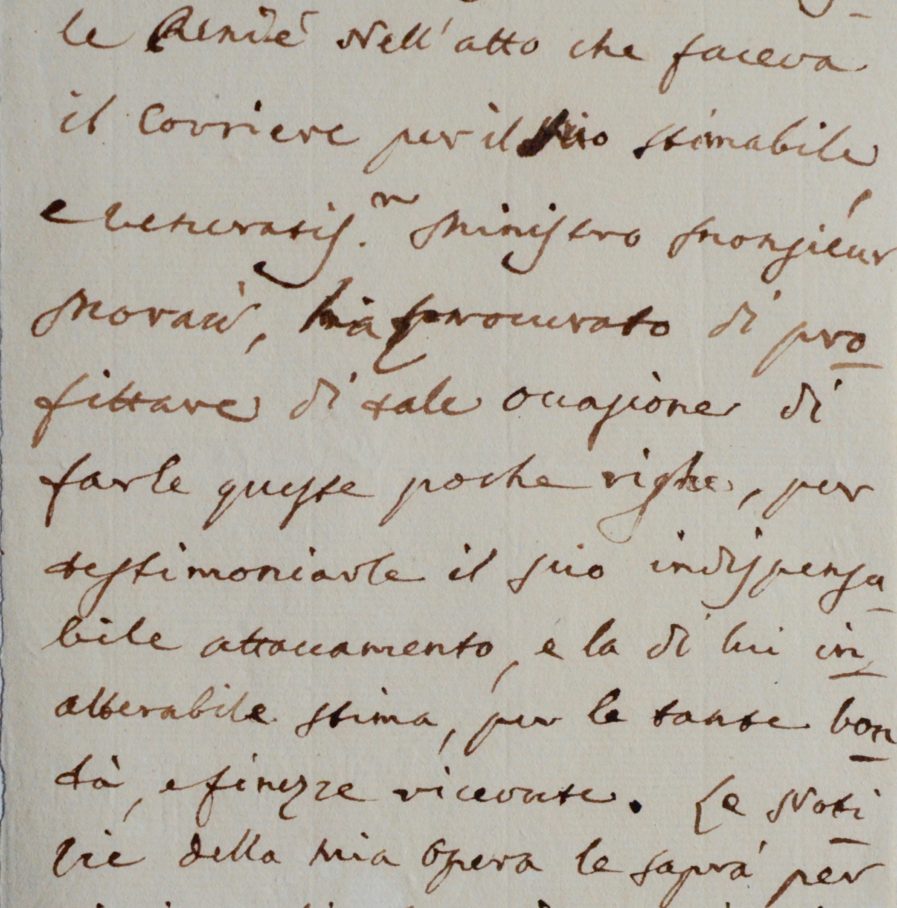 le Renite Nell'atto che faceva
il Corriere per il suo stimabile
e veneratis.mo Ministro Monsieur
Moraù, ha procurato di pro
fittare di tale ocasione di
farle queste poche righe, per
testimoniarle il suo indispensa
bile attaccamento, e la di lui in
alterabile stima, per le tante bon
tà, e finezze ricevute. Le Noti
zie della mia Opera le saprà per